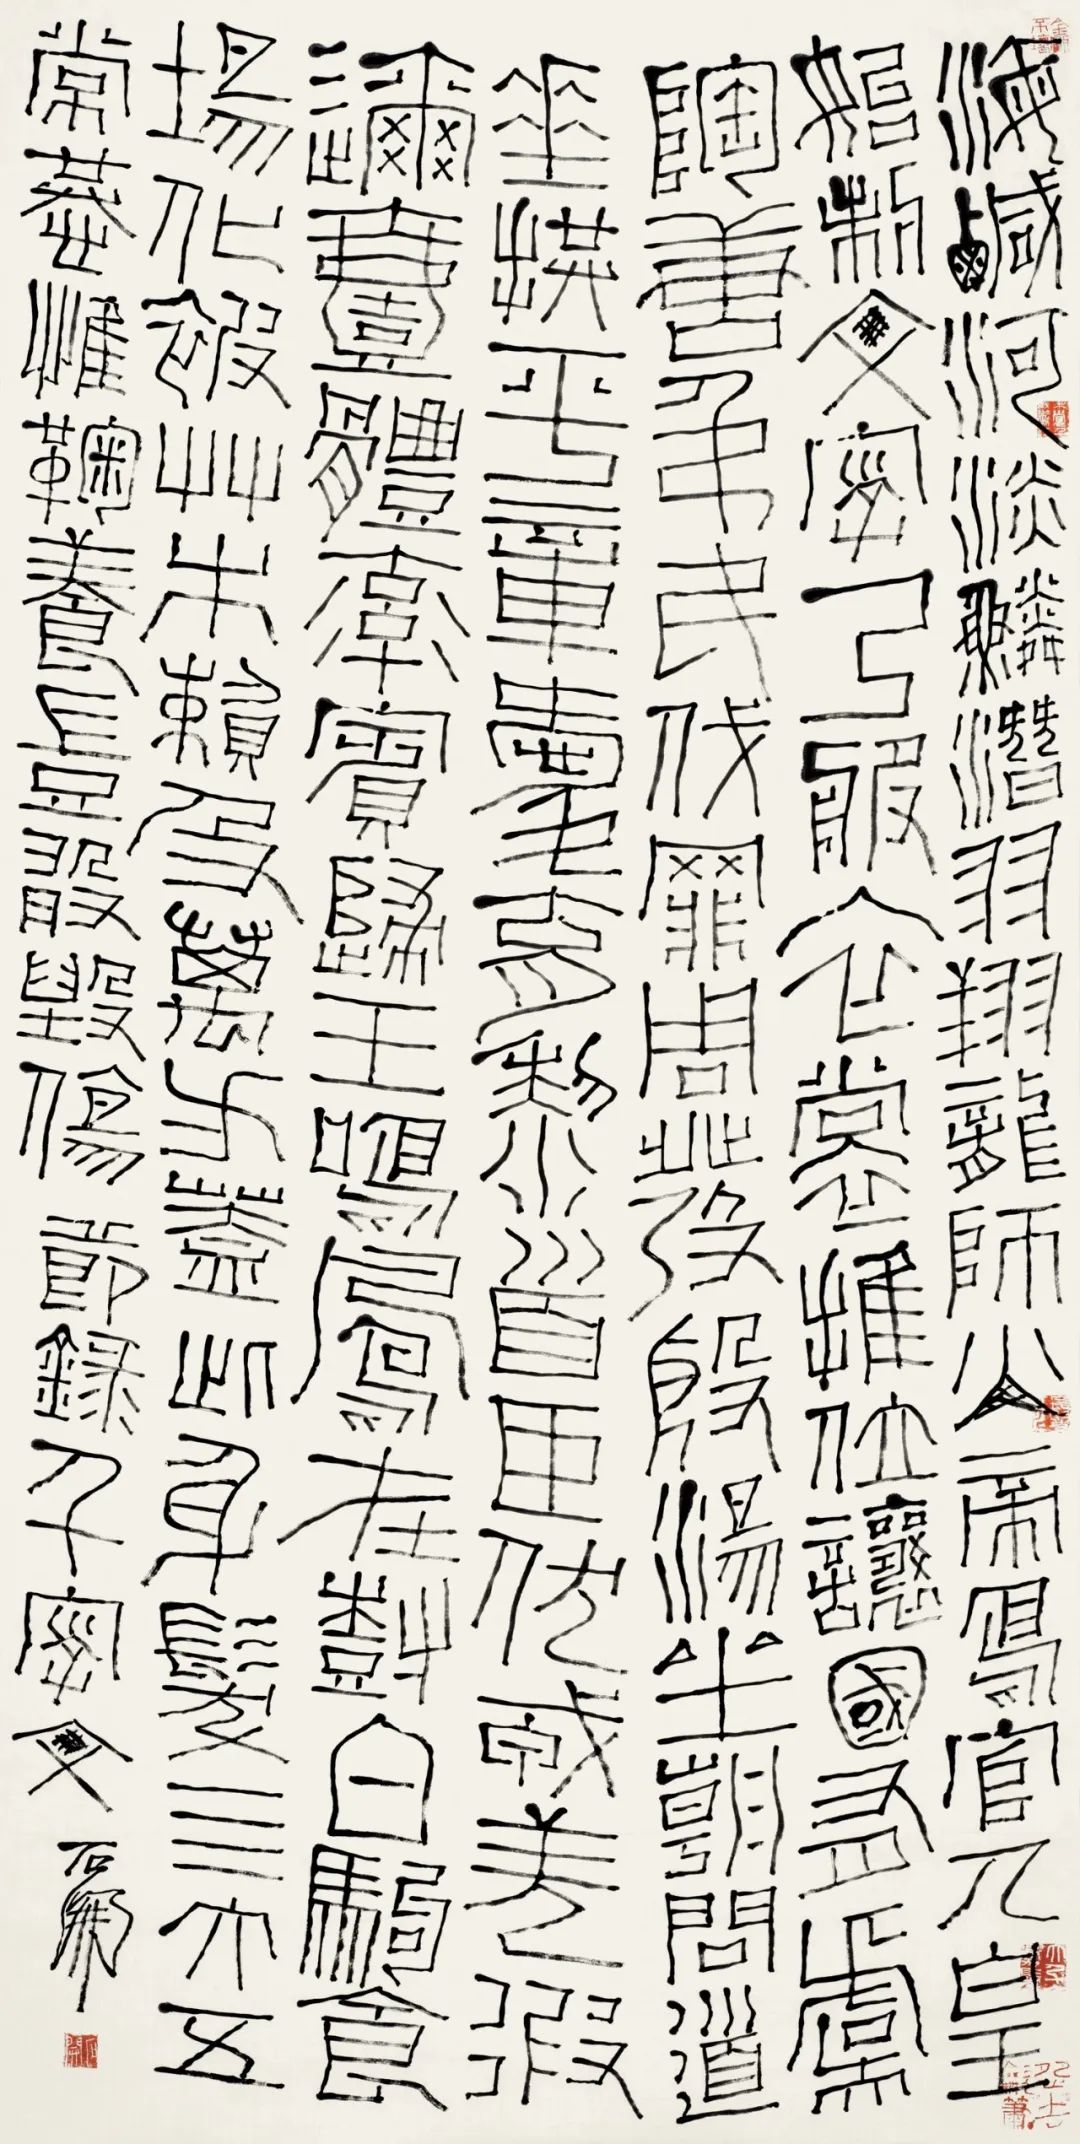 海鹹河淡鱗潛羽翔龍師火帝鳥官人皇
始制文字乃服衣裳推位讓國有虞
陶唐弔民伐罪周發殷湯坐朝問道
垂拱平章愛育黎首臣伏戎羌遐
邇壹體率賓歸王鳴鳳在樹白駒食
場化被艸木賴及萬方蓋此身髮四大五
常恭惟鞠養豈敢毀傷 節錄千字文 石開